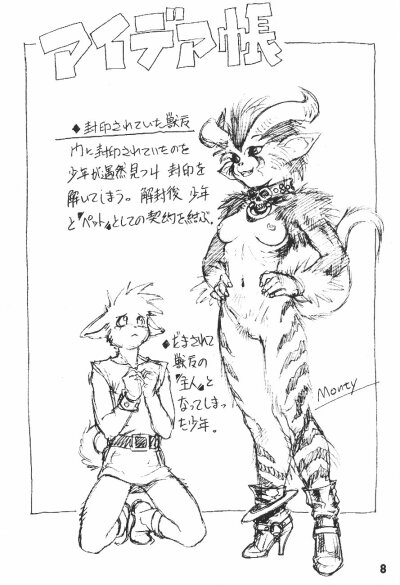 アイデア帳
◆封印されていた獣友
内に封印されていたのを
少年が偶然見つけ 封印を
解いてしまう。解封後 少年
と『ペット』としての契約を結ぶ。
◆だまされて
獣友の
『主人』と
なってしまっ
た少年。
Monty
8